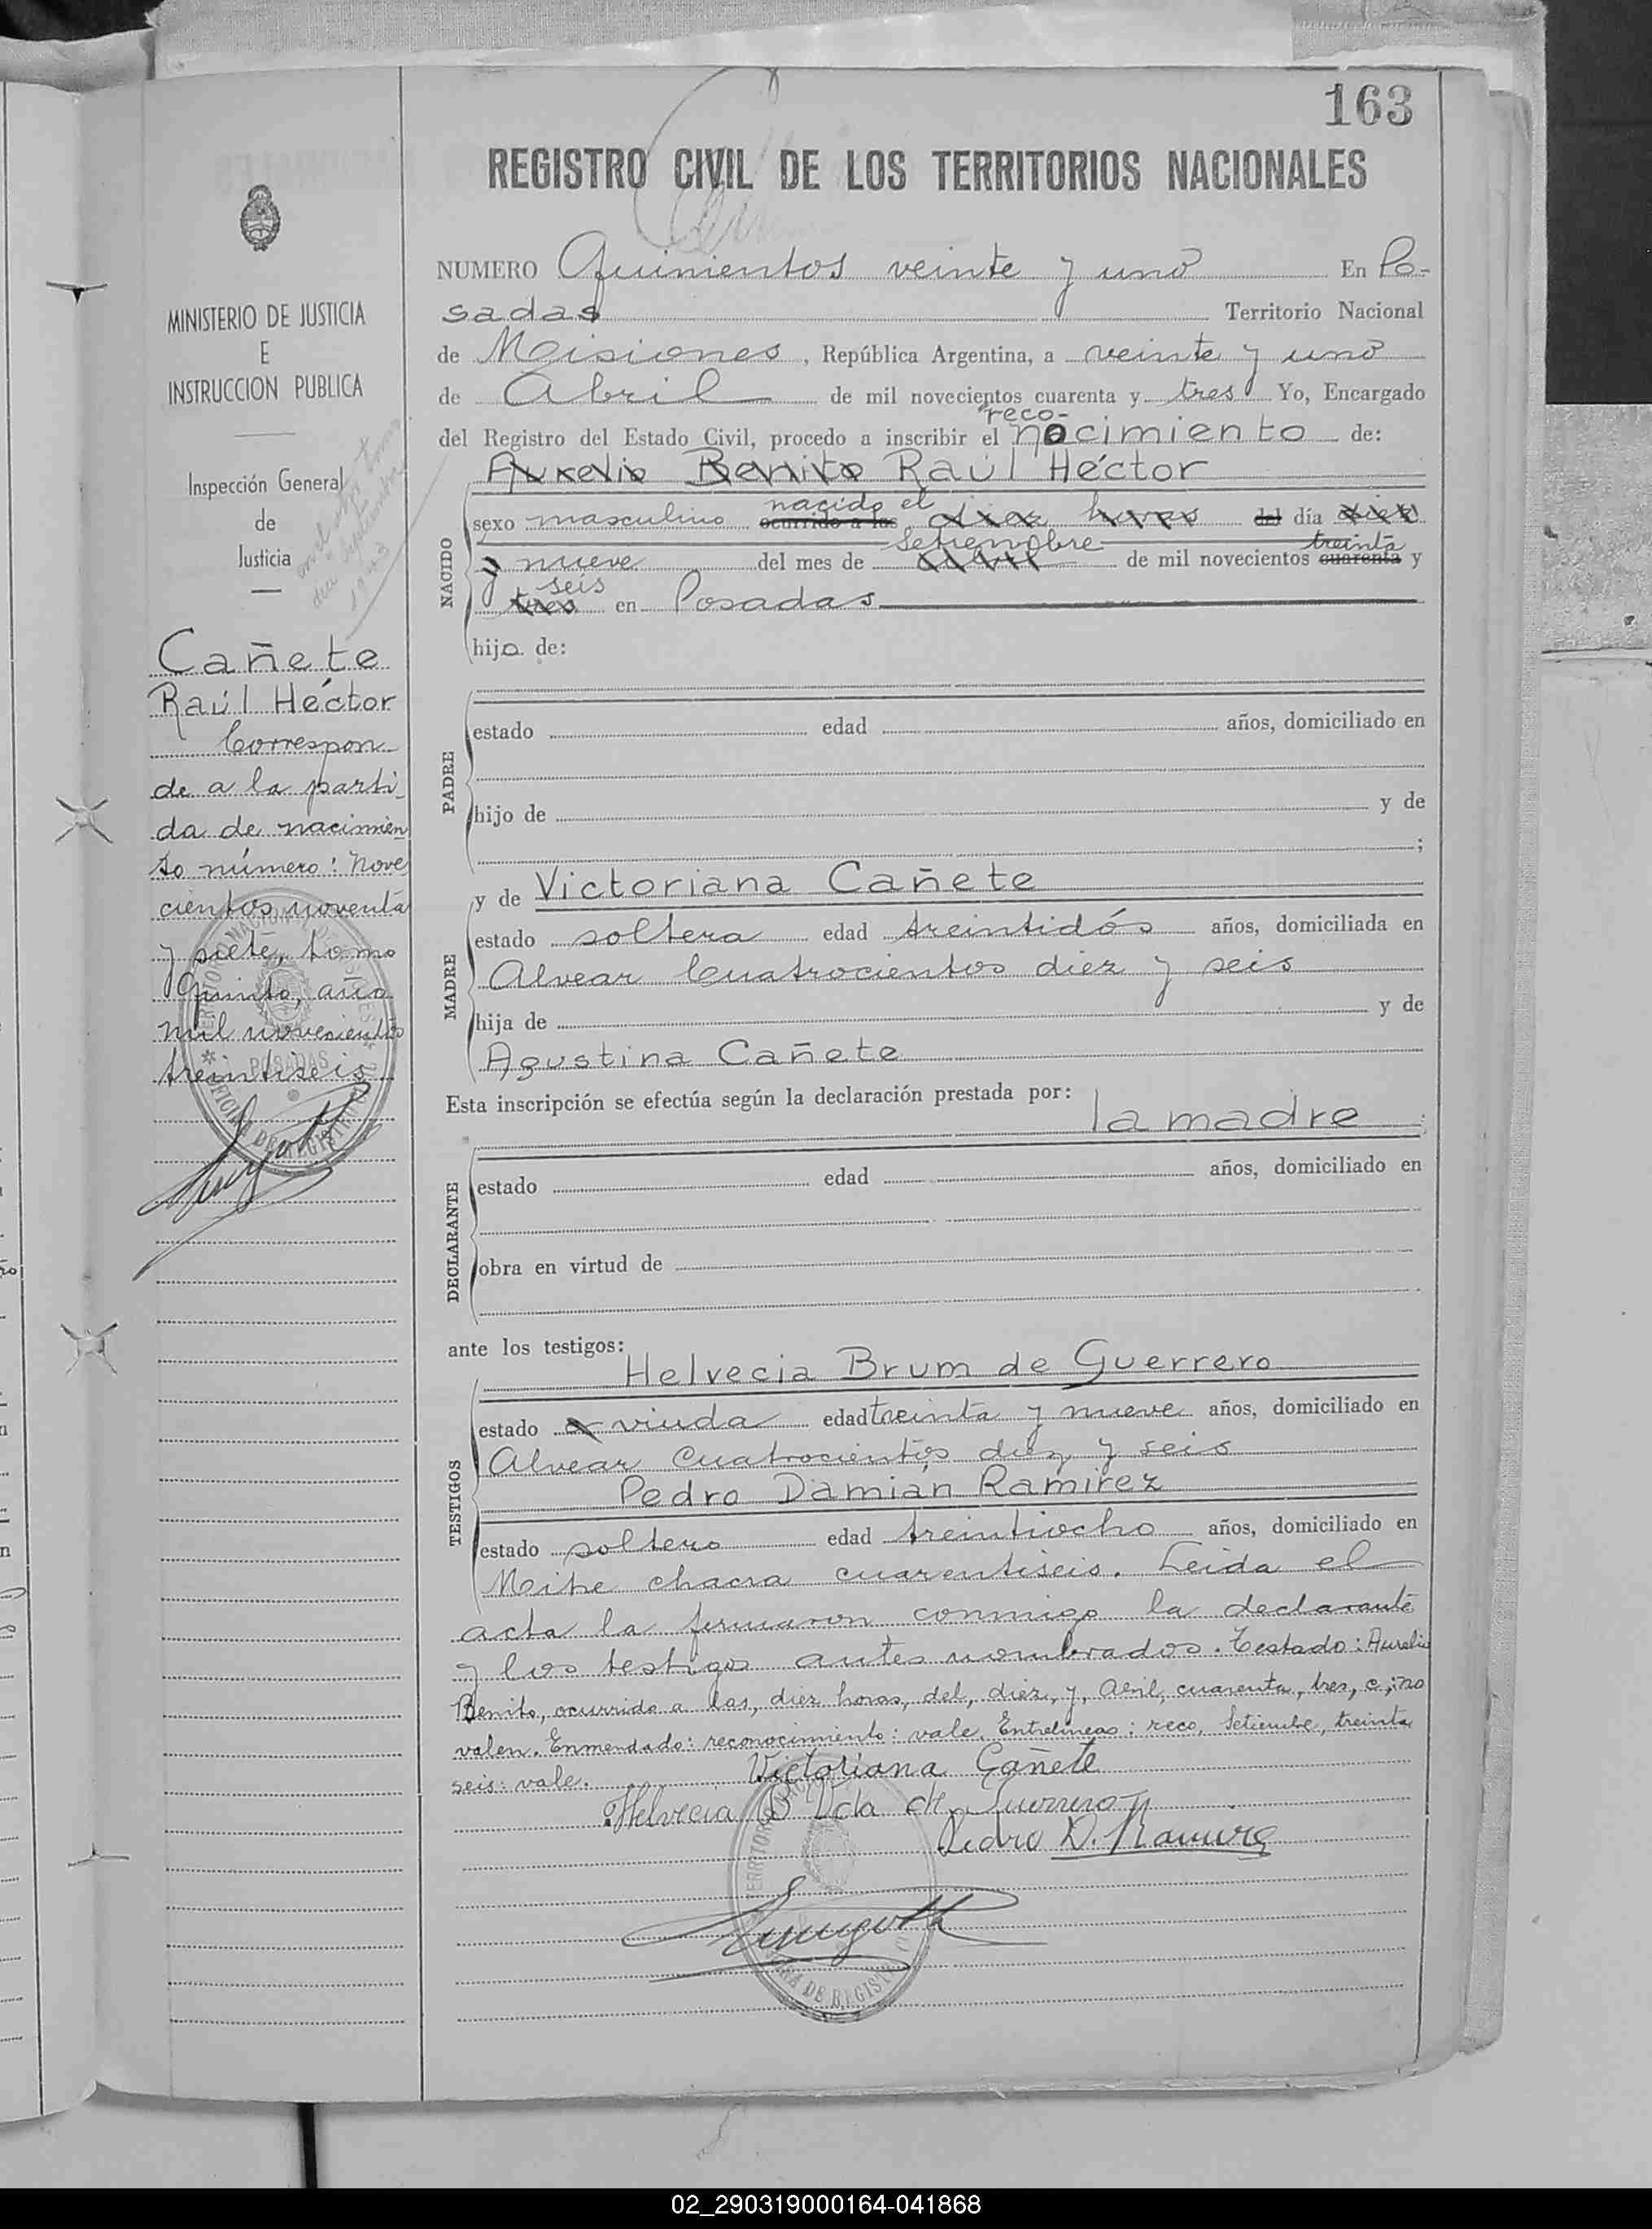 163
REGISTRO CIVIL DE LOS TERRITORIOS NACIONALES
MINISTERIO DE JUSTICIA
E
INSTRUCCION PUBLICA
Inspección General
de
Justicia
Cañete
Raúl Héctor
Correspon-
de a la parti-
da de nacimien
to número: nove
cientos noventa
y siete, tomo
Quinto, año
mil novecientos
treintiseis
NUMERO Quinientos veinte y uno En Po-
sadas Territorio Nacional
de Misiones, República Argentina, a veinte y uno
de Abril de mil novecientos cuarenta y tres Yo, Encargado
reco-
del Registro del Estado Civil, procedo a inscribir el nocimiento de:
Aurelio Benito Raúl Héctor
nacido el
sexo masculino ocurrido a las diez horas del día diez
Setiembre treinta
y nueve del mes de Abril de mil novecientos cuarenta y
seis
tres en Posadas
hijo de:
NACIDO
estado edad años, domiciliado en
PADRE
hijo de y de
;
y de Victoriana Cañete
estado soltera edad treintidós años, domiciliada en
Alvear Cuatrocientos diez y seis
MADRE
hija de y de
Agustina Cañete
Esta inscripción se efectúa según la declaración prestada por: la madre
estado edad años, domiciliado en
DECLARANTE
obra en virtud de
ante los testigos:
Helvecia Brum de Guerrero
estado viuda edad treinta y nueve años, domiciliado en
Alvear Cuatrocientos diez y seis
TESTIGOS
Pedro Damián Ramírez
estado soltero edad treintiocho años, domiciliado en
Mitre chacra cuarentiseis. Leida el
acta la firmaron conmigo la declarante
y los testigos antes nombrados. Testado: Aurelio
Benito, ocurrido a las, diez horas, del, diez, y, Abril, cuarenta, tres, c; no
valen. Enmendado: reconocimiento: vale. Entrelineas: reco, Setiembre, treinta
seis: vale.
Victoriana Cañete
Helvecia B Vda de Guerrero
Pedro D. Ramirez
02_290319000164-041868